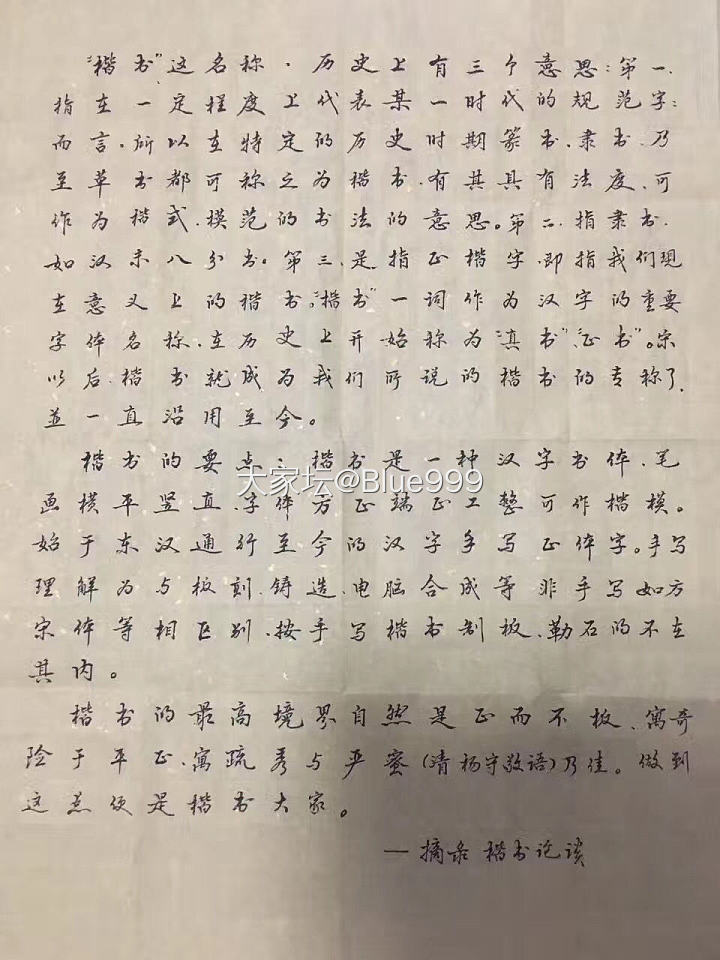 “楷书”这名称.历史上有三个意思:第一.
指在一定程度上代表某一时代的规范字:
而言.所以在特定的历史时期篆书.隶书.乃
至草书都可称之为楷书.有其具有法度、可
作为楷式.模范的书法的意思。第二.指隶书.
如汉末八分书。第三.是指正楷字.即指我们现
在意义上的楷书。“楷书”一词作为汉字的重要
字体名称.在历史上开始称为“真书”、“正书”。宋
以后.楷书就成为我们所说的楷书的专称了.
並一直沿用至今。
楷书的要点:楷书是一种汉字书体.笔
画横平竖直.字体方正端正工整可作楷模。
始于东汉通行至今的汉字手写正体字。手写
理解为与板刻.铸造.电脑合成等非手写如方
宋体等相区别.按手写楷书制板、勒石的不在
其内。
楷书的最高境界自然是正而不板、寓奇
险于平正、寓疏秀与严蜜(清杨守敬语)乃佳。做到
这点便是楷书大家。
— 摘录 楷书论谈
大家坛@Blue999